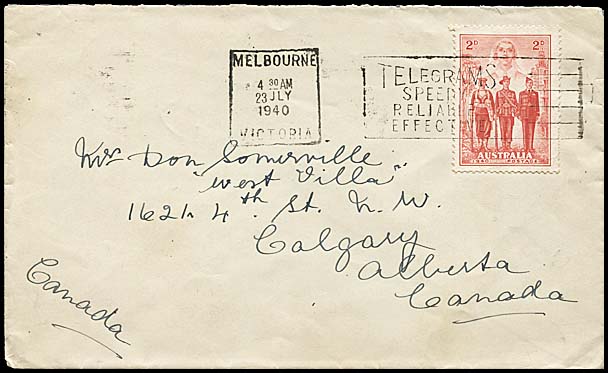 MELBOURNE
4 30 AM
23 JLY
1940
VICTORIA
TELEGRAMS
SPEED
RELIAB
EFFECTIV
2D 2D
AUSTRALIA
1940 POSTAGE
Mrs Don Somerville
"West Villa"
1621 4th St. N.W.
Calgary
Alberta
Canada
Canada